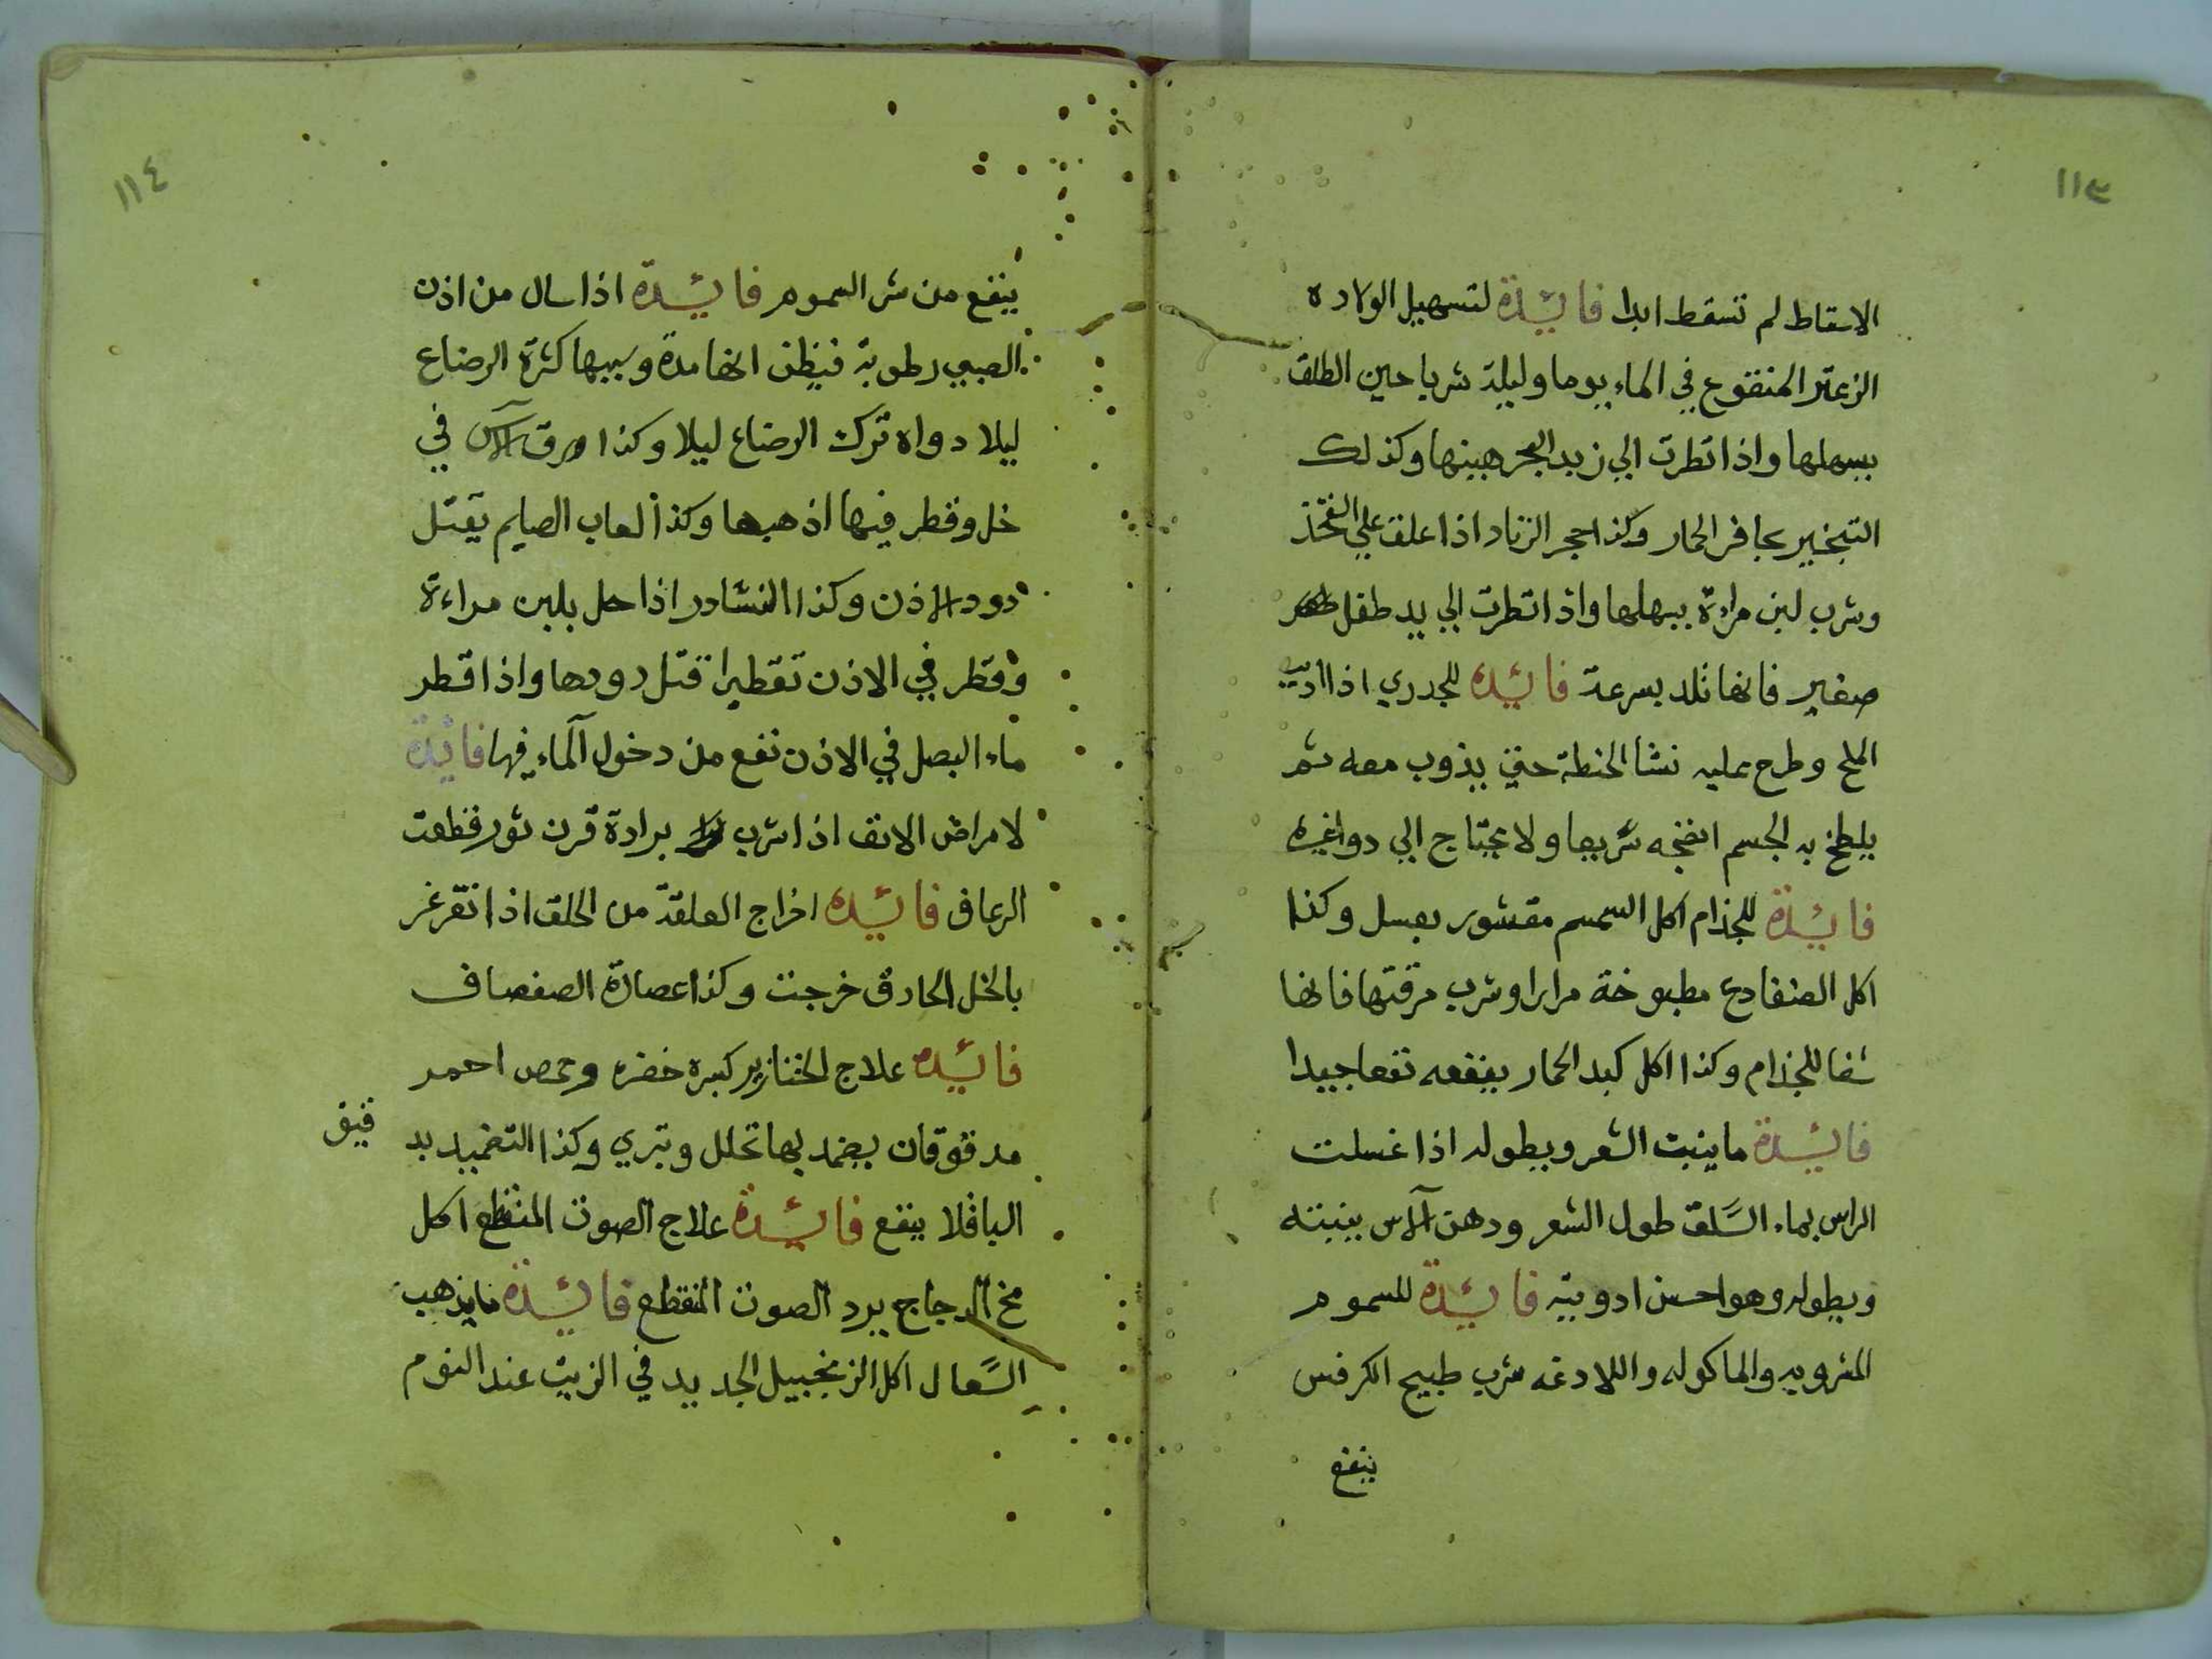 ١١٣
الاسقاط لم تسقط ابدا فائدة لتسهيل الولاده
الزعتر المنقوع في الماء يوما وليلة شربا حين الطلق
يسهلها واذا نظرت الي زبد البحر هينها وكذلك
التبخير بحافر الحمار وكذا حجر الزناد اذا علق علي الفخذ
وشرب لبن مراة يسهلها واذا نظرت الي يد طفل
صغير فانها تلد بسرعة فائدة للجدري اذا اذيب
الملح وطرح عليه نشا الحنطة حتي يذوب معه ثم
يلطخ به الجسم انضجه سريعا ولا يحتاج الي دوا غيره
فائدة للجذام اكل السمسم مقشور بعسل وكذا
اكل الضفادع مطبوخة مرارا وشرب مرقتها فانها
شفا للجذام وكذا اكل كبد الحمار ينفعه نفعا جيدا
فائدة ما ينبت الشعر ويطوله اذا غسلت
الراس بماء السَّلق طول الشعر ودهن الآس ينبته
ويطوله وهو احسن ادويته فائدة للسموم
المشروبه والماكوله واللادغه شرب طبيح الكرفس
ينفع
١١٤
ينفع من شر السموم فائدة اذا سال من اذن
الصبي رطوبة فيظن انها مدة وسببها كثرة الرضاع
ليلا دواه ترك الرضاع ليلا وكذا ورق الآس في
خل وقطر فيها اذهبها وكذا لعاب الصايم يقتل
دود الاذن وكذا النشادر اذا حل بلبن مراءة
وقطر في الاذن تقطيرا قتل دودها واذا قطر
ماء البصل في الاذن نفع من دخول المآء فيها فائدة
لامراض الانف اذا شرب برادة قرن ثور قطعت
الرعاف فائده اخراج العلقة من الحلق اذا تغرغر
بالخل الحادق خرجت وكذا عصارة الصفصاف
فائده علاج الخنازير كسبره خضره وحمص احمر
مدقوقان يضمد بها تحلل وتبري وكذا التضميد بد
قيق
الباقلا ينفع فائدة علاج الصوت المنقطع اكل
مخ الدجاج يرد الصوت المنقطع فائدة ما يذهب
السَّعال اكل الزنجبيل الجديد في الزيت عند النوم